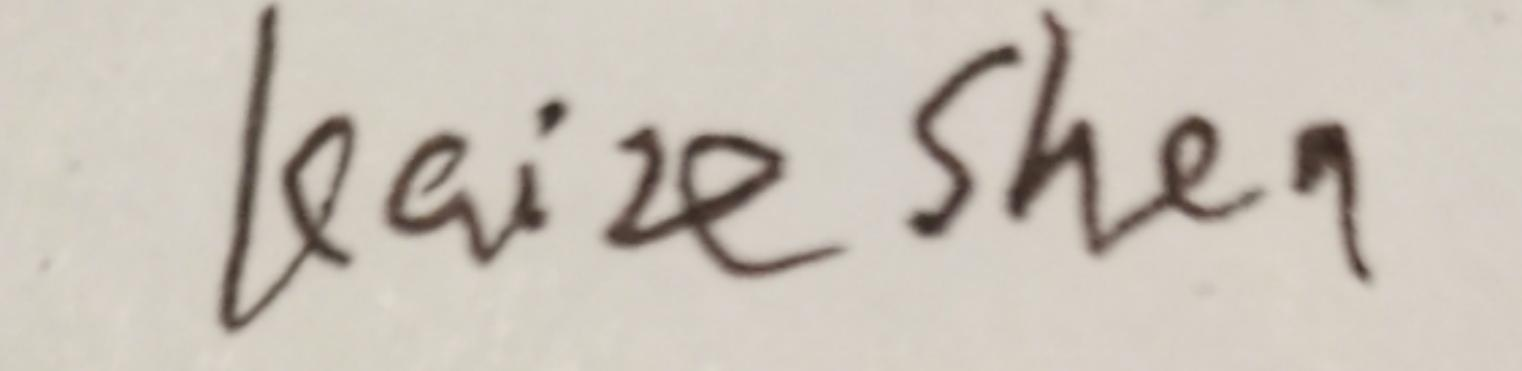 kaize shen